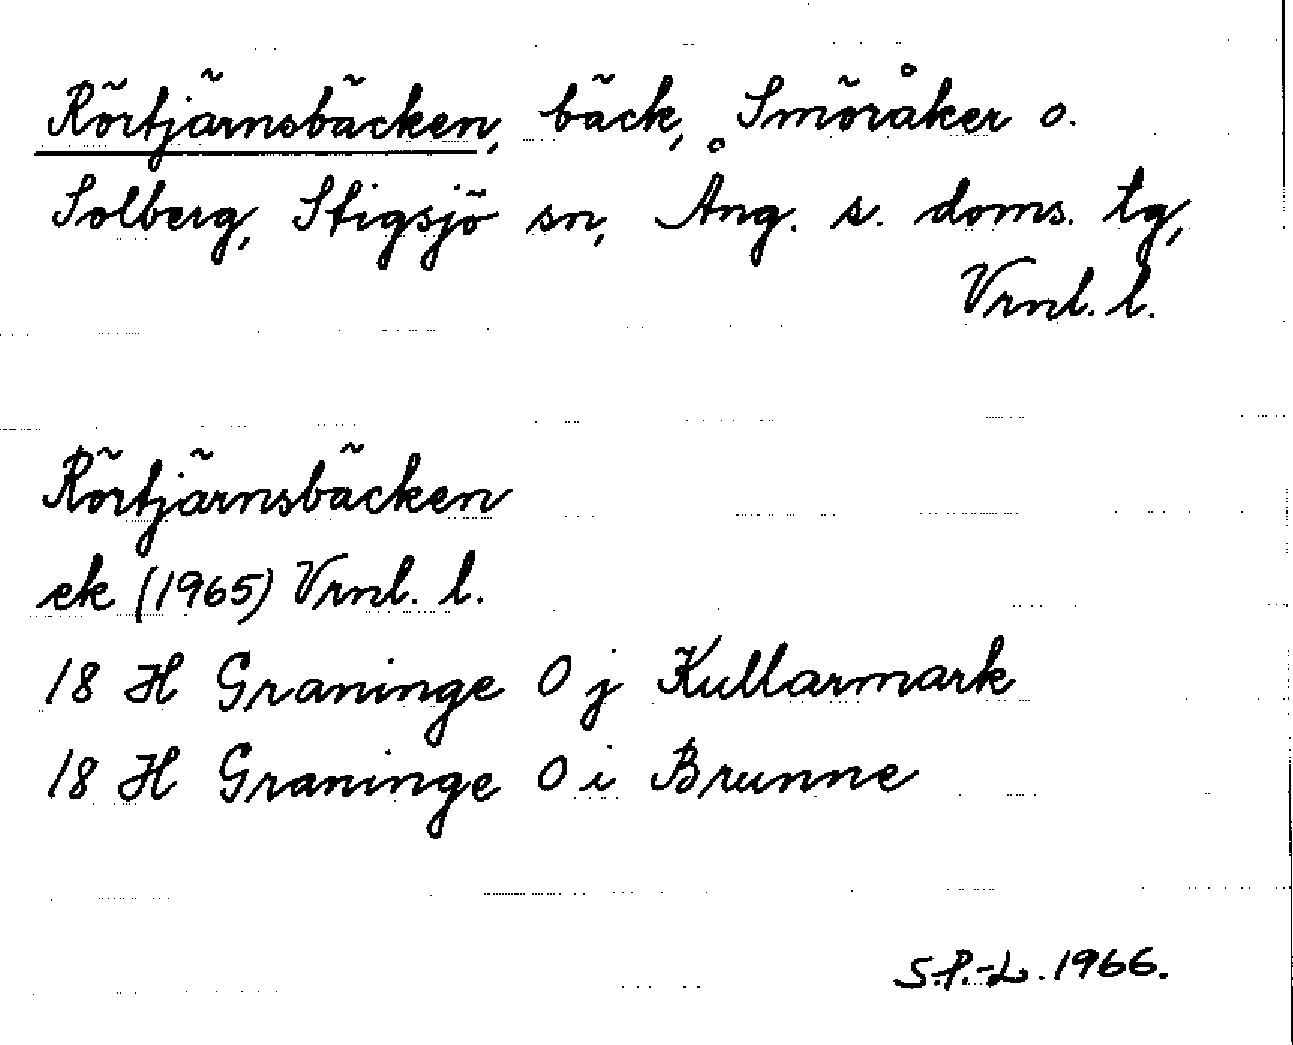 Rörtjärnsbäcken, bäck, Smöråker o.
Solberg, Stigsjö sn, Ång. s. doms. tg,
Vrnl. l.
Rörtjärnsbäcken
ek (1965) Vrnl. l.
18 H Graninge O j Kullarmark
18 H Graninge O i Brunne
S.P.-L. 1966.